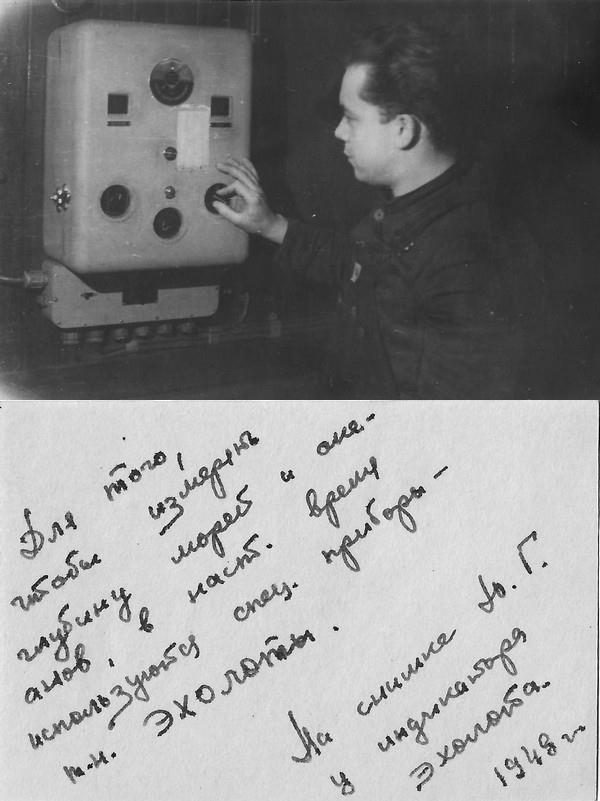 Для того,
чтобы измерять
глубину морей и оке-
анов, в наст. время
используются спец. приборы -
т.н. эхолоты.
На снимке Ю. Г.
у индикатора
Эхолота.
1949 г.